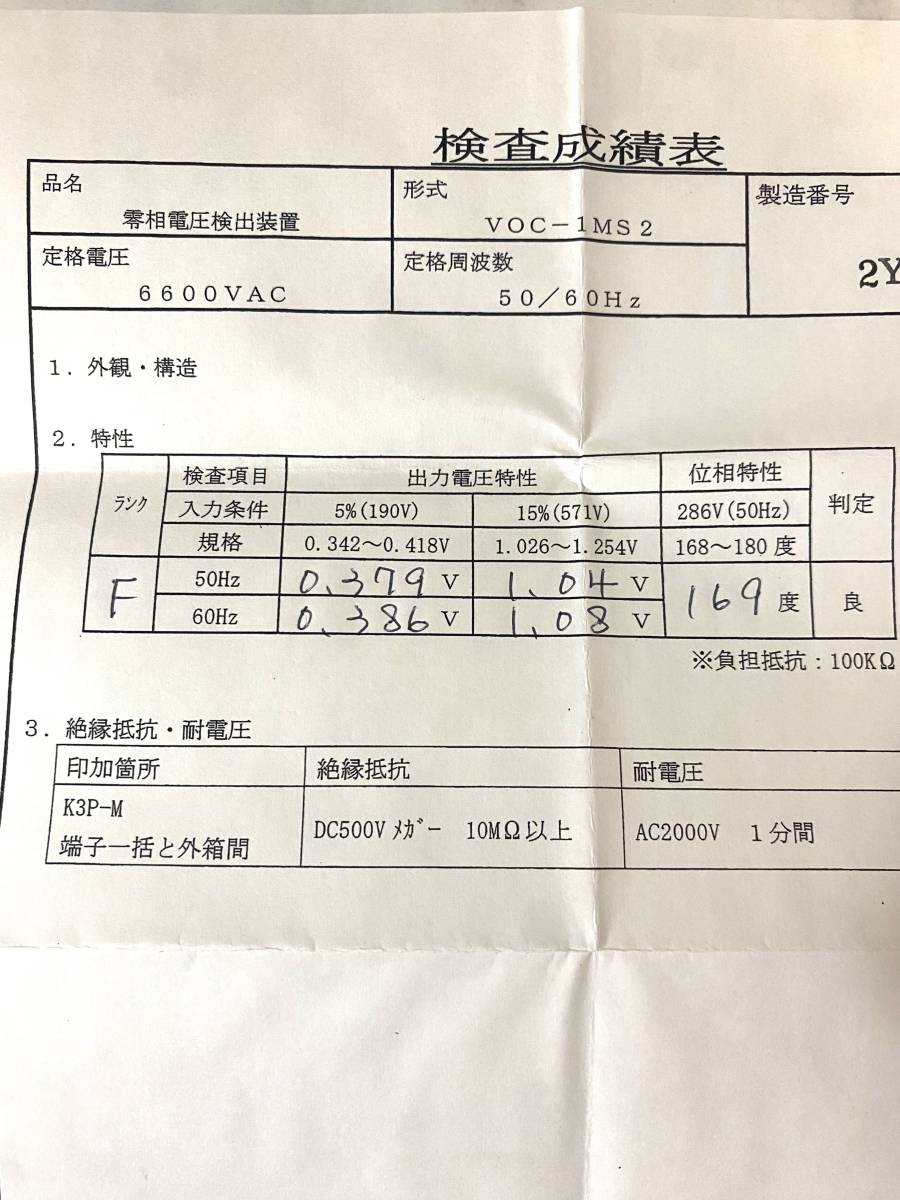 検査成績表
品名 形式 製造番号
零相電圧検出装置 VOC-1MS2
定格電圧 定格周波数 2Y
6600VAC 50/60Hz
1. 外観・構造
2. 特性
ランク 検査項目 出力電圧特性 位相特性 判定
入力条件 5%(190V) 15%(571V) 286V(50Hz)
規格 0.342~0.418V 1.026~1.254V 168~180度
F 50Hz 0.379 V 1.04 V 169 度 良
60Hz 0.386 V 1.08 V
※負担抵抗:100KΩ
3. 絶縁抵抗・耐電圧
印加箇所 絶縁抵抗 耐電圧
K3P-M
端子一括と外箱間 DC500Vメガー 10MΩ以上 AC2000V 1分間